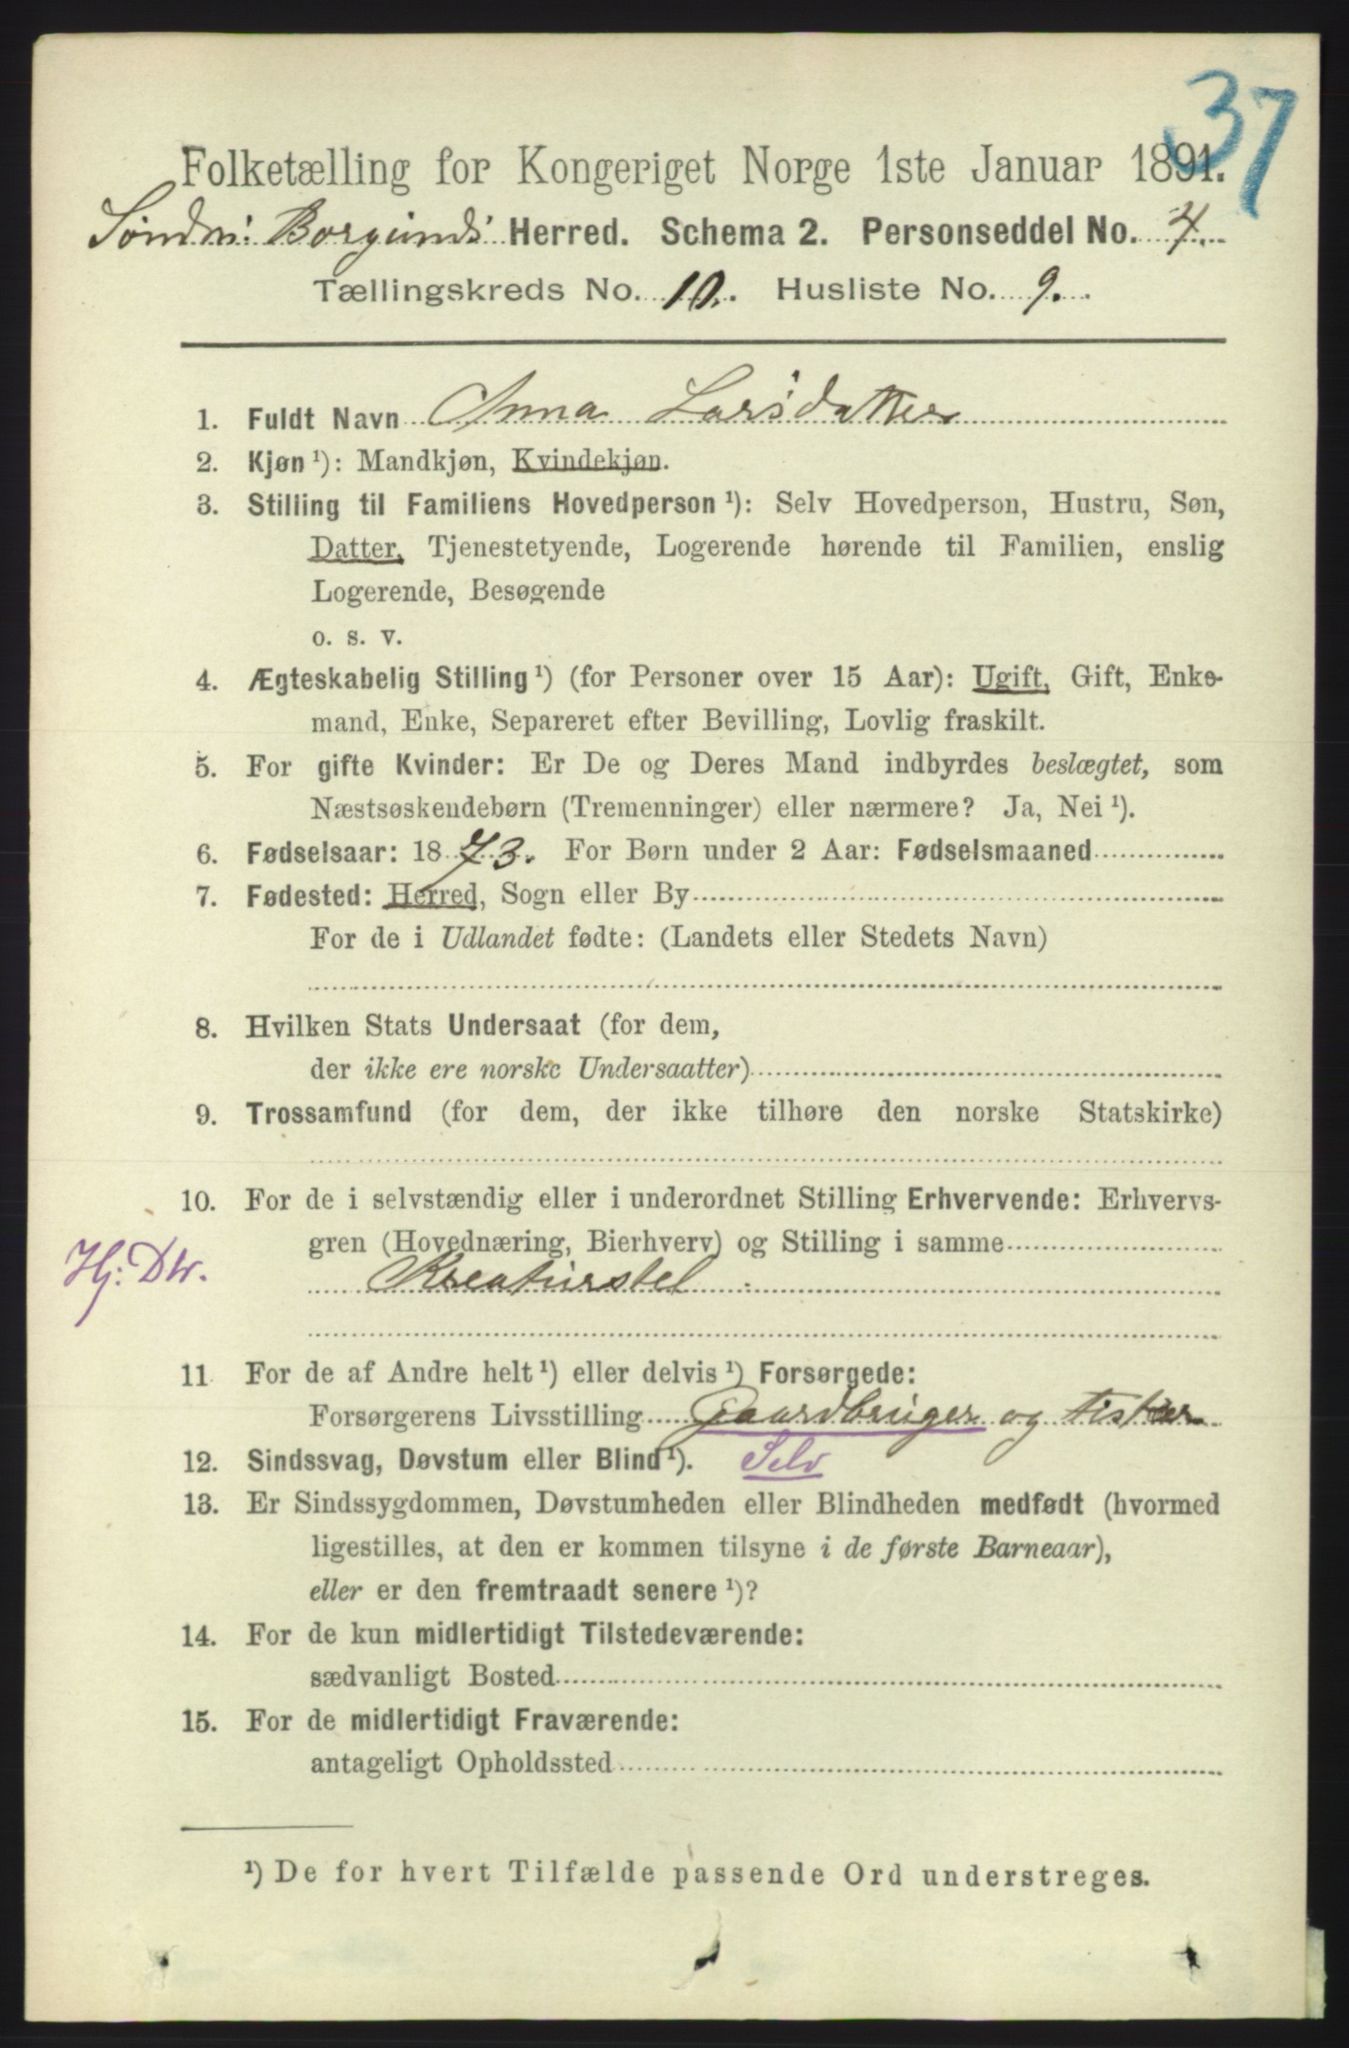 37
Folketælling for Kongeriget Norge 1ste Januar 1891.
Søndm: Borgunds Herred. Schema 2. Personseddel No. 4.
Tællingskreds No. 10. Husliste No. 9.
1. Fuldt Navn Anna Larsdatter
2. Kjøn ¹): Mandkjøn, Kvindekjøn.
3. Stilling til Familiens Hovedperson ¹): Selv Hovedperson, Hustru, Søn,
Datter, Tjenestetyende, Logerende hørende til Familien, enslig
Logerende, Besøgende
o. s. v.
4. Ægteskabelig Stilling ¹) (for Personer over 15 Aar): Ugift, Gift, Enke-
mand, Enke, Separeret efter Bevilling, Lovlig fraskilt.
5. For gifte Kvinder: Er De og Deres Mand indbyrdes beslægtet, som
Næstsøskendebørn (Tremenninger) eller nærmere? Ja, Nei ¹).
6. Fødselsaar: 1873. For Børn under 2 Aar: Fødselsmaaned
7. Fødested: Herred, Sogn eller By
For de i Udlandet fødte: (Landets eller Stedets Navn)
8. Hvilken Stats Undersaat (for dem,
der ikke ere norske Undersaatter)
9. Trossamfund (for dem, der ikke tilhøre den norske Statskirke)
10. For de i selvstændig eller i underordnet Stilling Erhvervende: Erhvervs-
gren (Hovednæring, Bierhverv) og Stilling i samme
Hj: Dtr. Kreaturstel
11 For de af Andre helt ¹) eller delvis ¹) Forsørgede:
Forsørgerens Livsstilling Gaardbruger og fisker
12. Sindssvag, Døvstum eller Blind ¹). Selv
13. Er Sindssygdommen, Døvstumheden eller Blindheden medfødt (hvormed
ligestilles, at den er kommen tilsyne i de første Barneaar),
eller er den fremtraadt senere ¹)?
14. For de kun midlertidigt Tilstedeværende:
sædvanligt Bosted
15. For de midlertidigt Fraværende:
antageligt Opholdssted
¹) De for hvert Tilfælde passende Ord understreges.